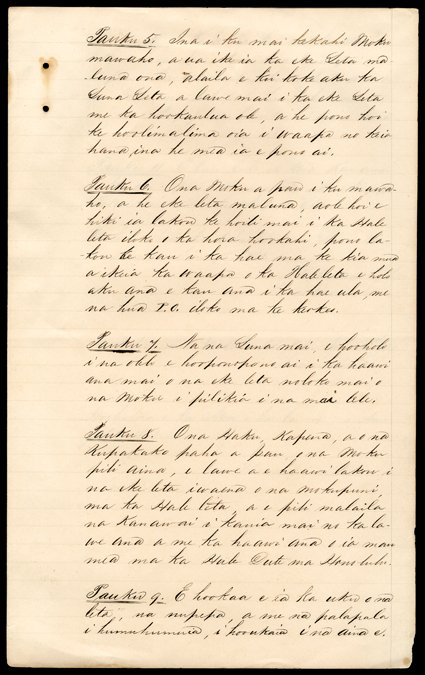 Pauku 5. Ina i ku mai kekahi Moku
mawaho, a ua ike ia ka eke Leta ma
luna ona, alaila e kii koke aku ka
Luna Leta a lawe mai i ka eke Leta
me ka hookaulua ole, a he pono hoi
ke hoolimalima oia i waapa no keia
hana, ina he mea ia e pono ai.
Pauku 6. Ona Moku a pau i ku mawa-
ho, a he eke leta maluna, aole hoi e
hiki ia lakou ke hoili mai i ka Hale
leta iloko o ka hora hookahi, pono la-
kou ke kau i ka hae ma ke kia mua
a ikeia ka waapa o ka Hale leta e holo
aku ana e kau ana i ka hae ula, me
na hua P.O. iloko ma ke keokeo.
Pauku 7. Na na Luna mai, e hooholo
i na olelo e hooponopono ai i ka haawi
ana mai o na eke leta noloko mai o
na Moku i pilikia i na mai lele.
Pauku 8. Ona Haku, Kapena, a o na
Kupakako paha a pau, o na Moku
pili aina, e lawe a e haawi lakou i
na eke leta iwaena o na Mokupuni,
ma ka Hale leta, a e pili malaila
na Kanawai i kauia mai no ka la-
we ana a me ka haawi ana o ia mau
mea ma ka Hale Dute ma Honolulu.
Pauku 9. E hookaa e ia ka uku o na
leta, na nupepa, a me na palapala
i humuhumuia, i hooukaia i na aina e.